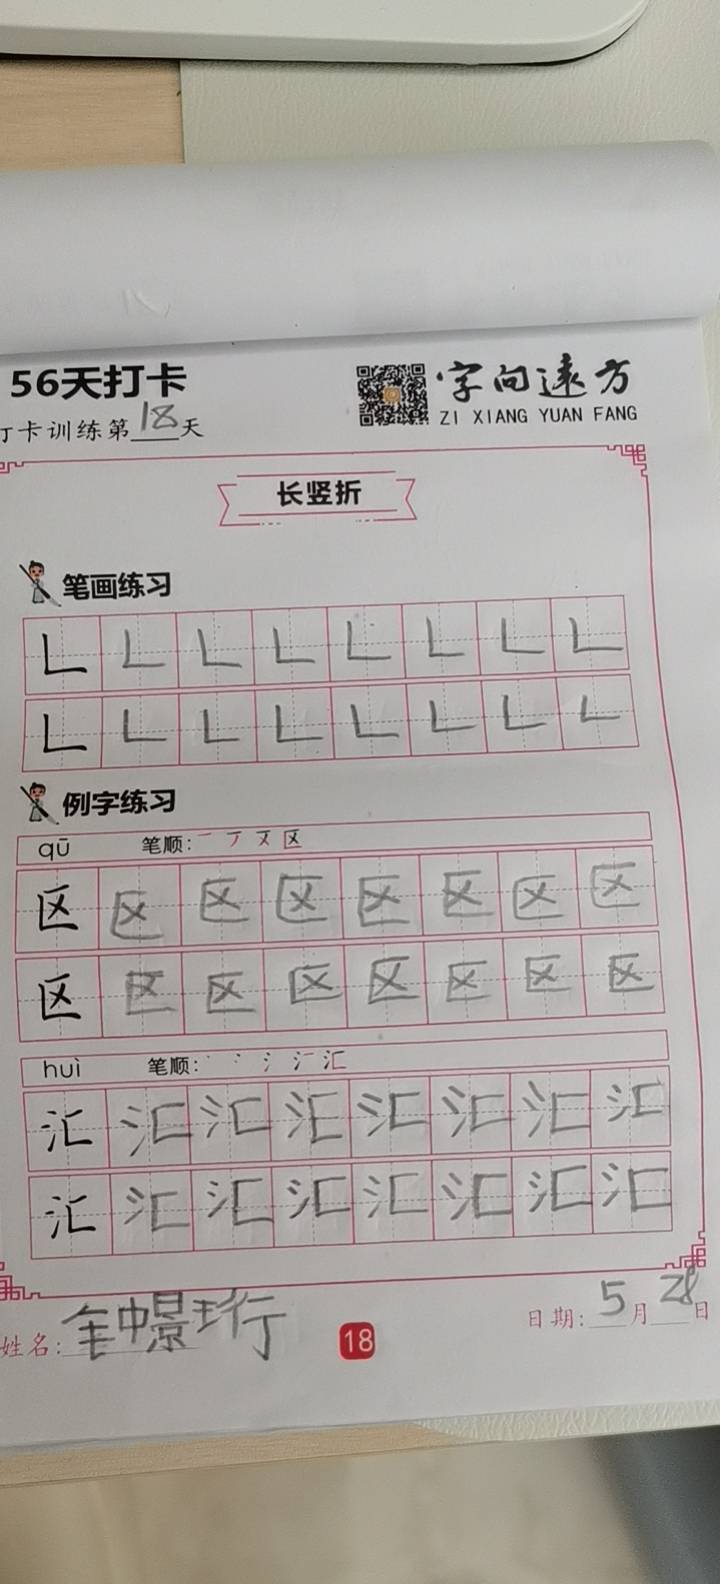 56天打卡
字向远方
ZI XIANG YUAN FANG
打卡训练第18天
长竖折
笔画练习
㇗ ㇗ ㇗ ㇗ ㇗ ㇗ ㇗ ㇗
㇗ ㇗ ㇗ ㇗ ㇗ ㇗ ㇗ ㇗
例字练习
qū 笔顺: 区
区 区 区 区 区 区 区 区
区 区 区 区 区 区 区 区
huì 笔顺: 汇
汇 汇 汇 汇 汇 汇 汇 汇
汇 汇 汇 汇 汇 汇 汇 汇
姓名: 钟景珩
18
日期: 5月28日